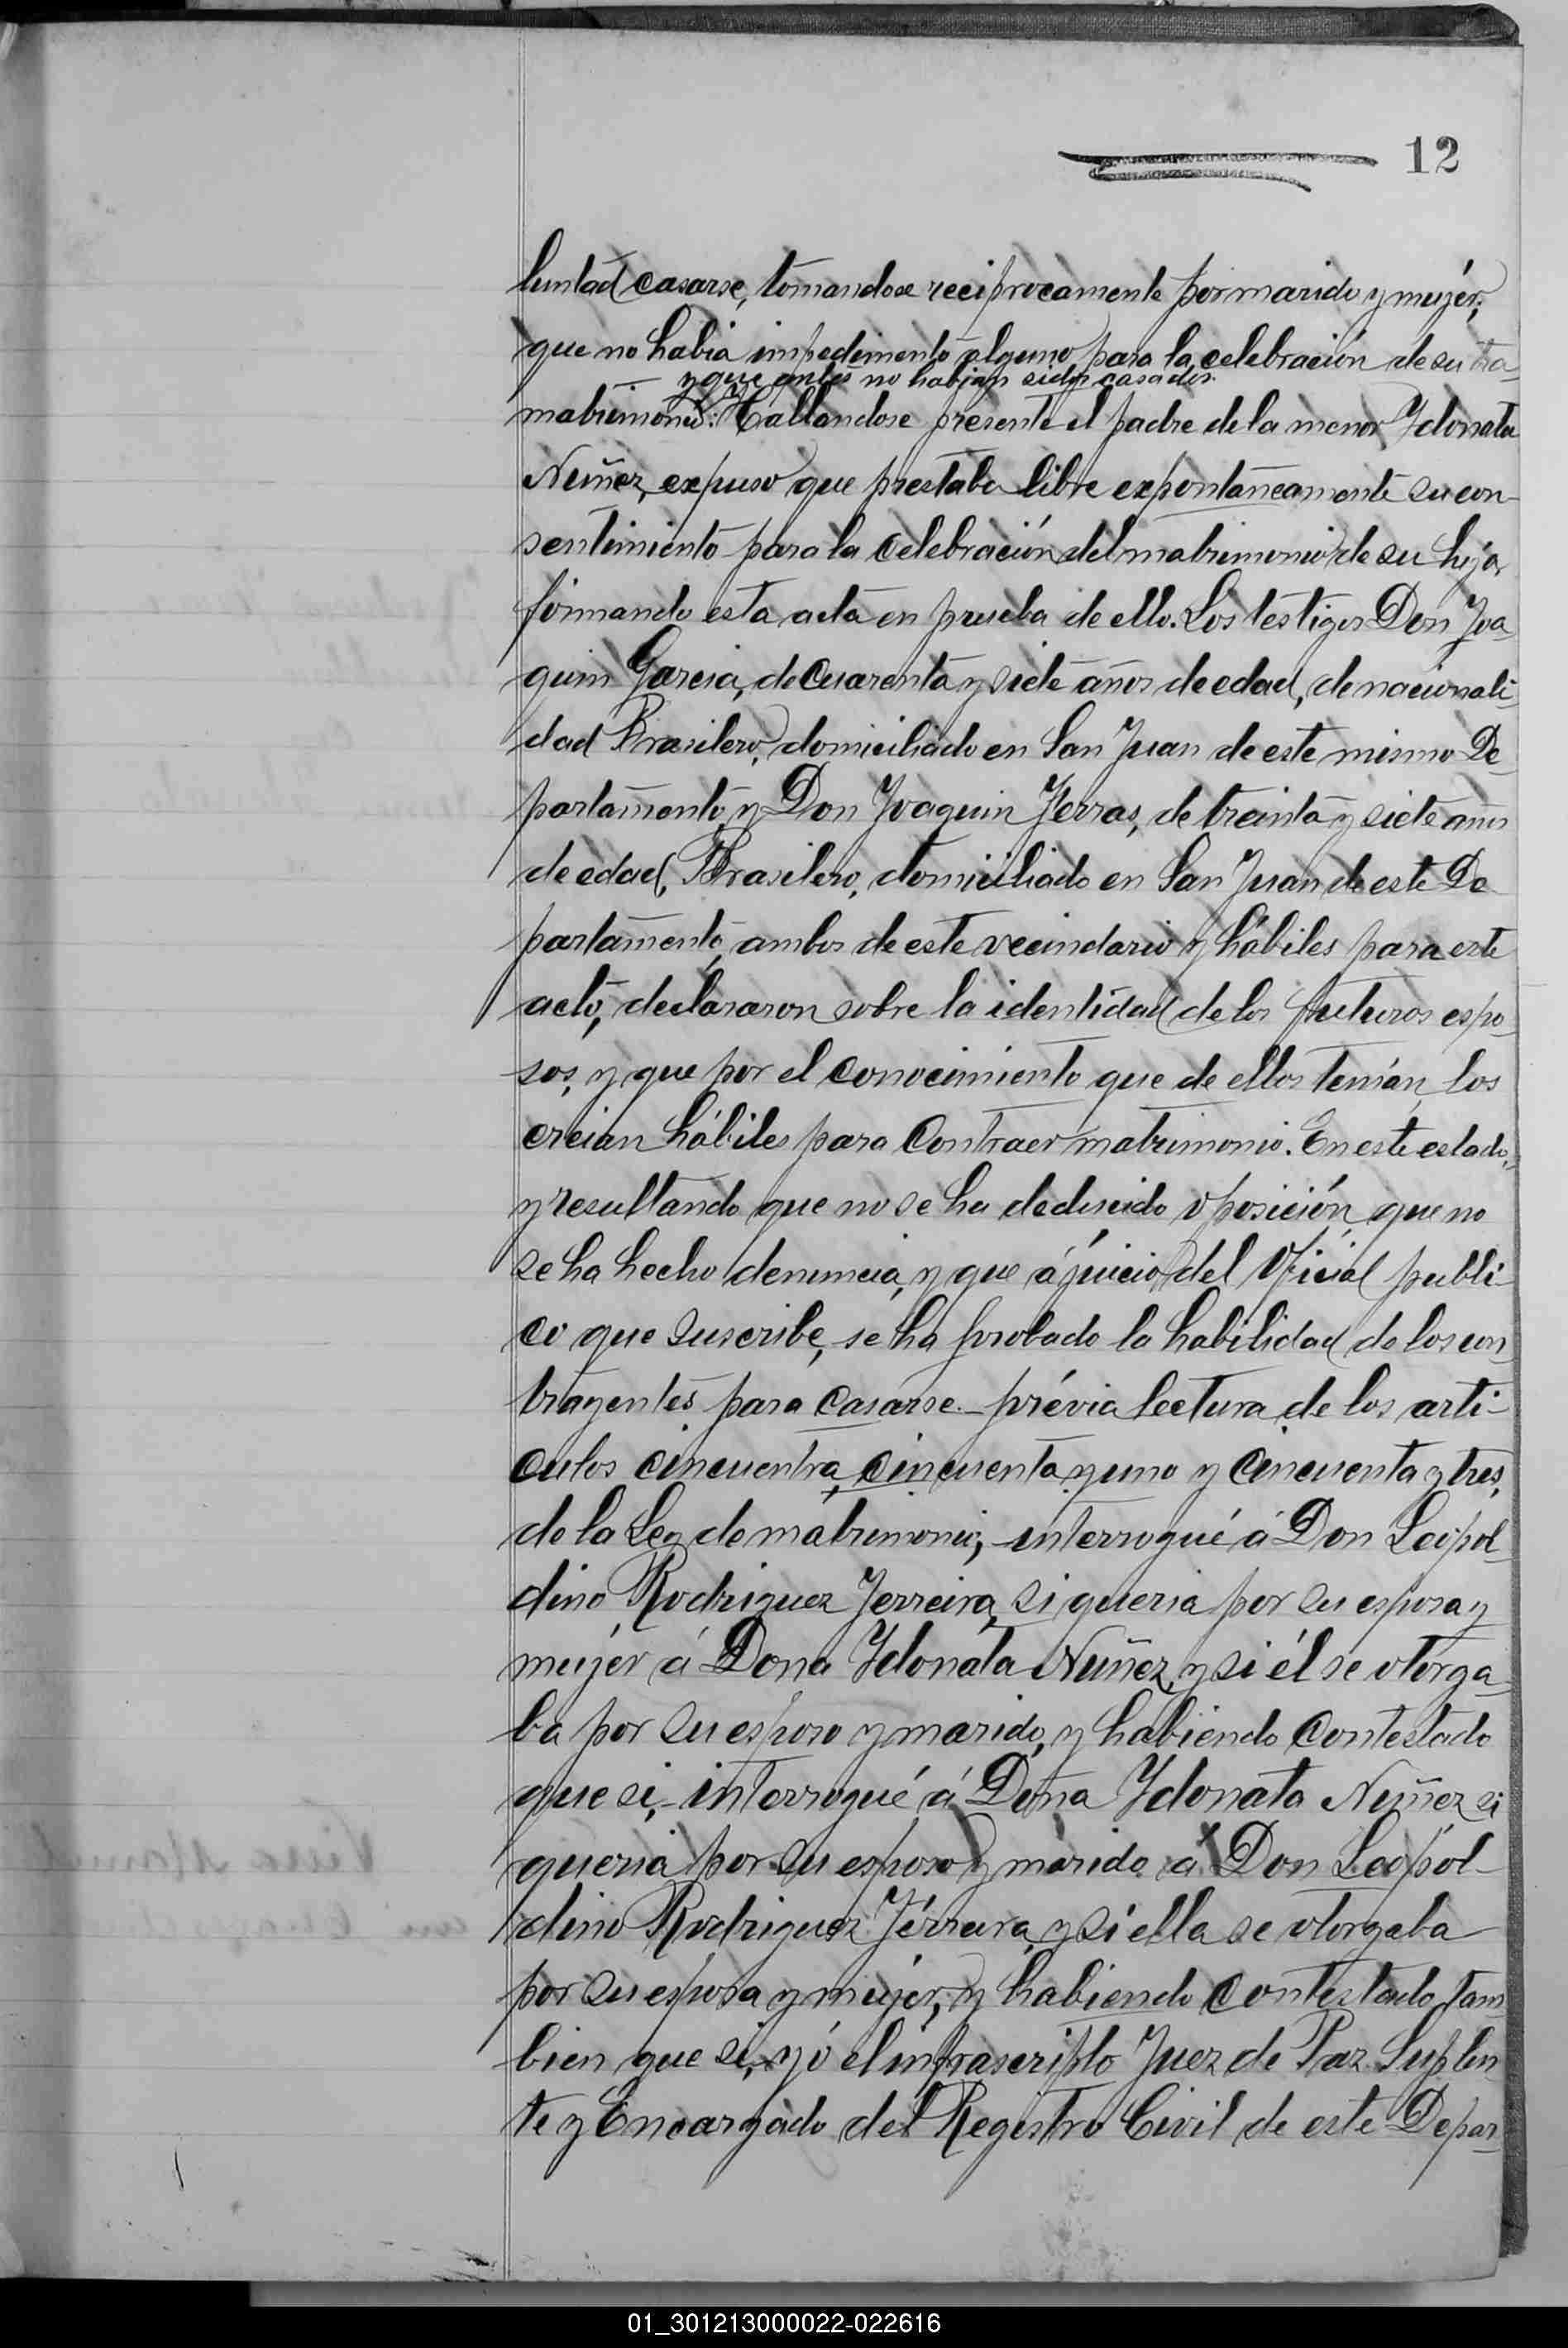 12
luntad casarse, tomandose reciprocamente por marido y mujér;
que no habia impedimento alguno para la celebración de su
y que antes no habian sido casados.
matrimonio: Hallandose presente el padre de la menor Ydonata
Nuñez, expuso que prestaba libre expontaneamente su con-
sentimiento para la celebración del matrimonio de su hija,
firmando esta acta en prueba de ello. Los testigos Don Joa-
quin Garcia, de cuarenta y siete años de edad, de nacionali-
dad Brasilero, domiciliado en San Juan de este mismo De-
partamento y Don Joaquin Ferras, de treinta y siete años
de edad, Brasilero, domiciliado en San Juan de este De-
partamento, ambos de este vecindario y hábiles para este
acto, declararon sobre la identidad de los futuros espo-
sos, y que por el conocimiento que de ellos tenian, los
creian hábiles para contraer matrimonio. En este estado,
y resultando que no se ha deducido oposición, que no
se ha hecho denuncia, y que á juicio del Oficial publi-
co que suscribe, se ha probado la habilidad de los con-
trayentes para casarse.- prévia lectura de los arti-
culos cincuentra, cincuenta y uno y cincuenta y tres,
de la Ley de matrimonio, - interrogué á Don Leopol-
dino Rodriguez Ferreira, si queria por su esposa y
mujer á Dona Ydonata Nuñez, y si él se otorga-
ba por su esposo y marido, y habiendo contestado
que si,- interrogué á Doña Ydonata Nuñez si
queria por su esposo y marido á Don Leopol-
dino Rodriguez Ferreira, y si ella se otorgaba
por su esposa y mujer, y habiendo contestado tam
bien que si, yó el infrascripto Juez de Paz Suplen
te y Encargado del Registro Civil de este Depar-
01_301213000022-022616